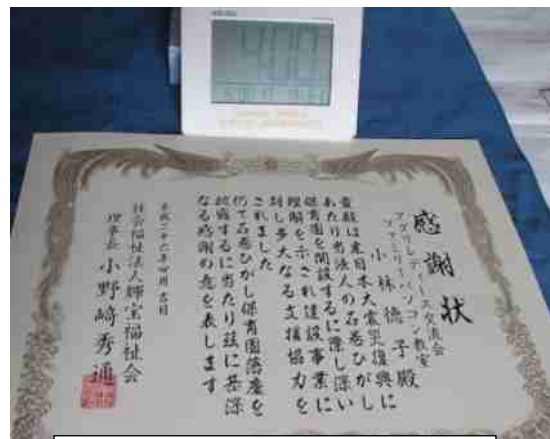 4:00
感謝状
アグリレディース交流会
ファミリーパソコン教室
小林徳子殿
貴殿は東日本大震災復興に
あたり当法人の石巻ひがし
保育園を開設するに際し深い
理解を示され建設事業に
対し多大なる支援協力を
されました
仍て石巻ひがし保育園落慶を
披露するに当たり茲に甚深
なる感謝の意を表します
平成二十六年四月吉日
社会福祉法人輝宝福祉会
理事長 小野﨑秀通